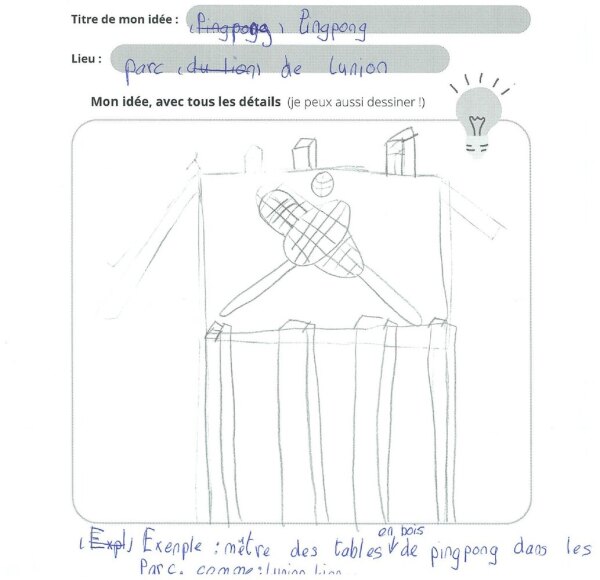 Titre de mon idée : (Pingpong) Pingpong
Lieu : parc (du lion) de Lunion
Mon idée, avec tous les détails (je peux aussi dessiner !)
(Expl) Exenple : mêtre des tables en bois de pingpong dans les
Parc. comme : lunion lion